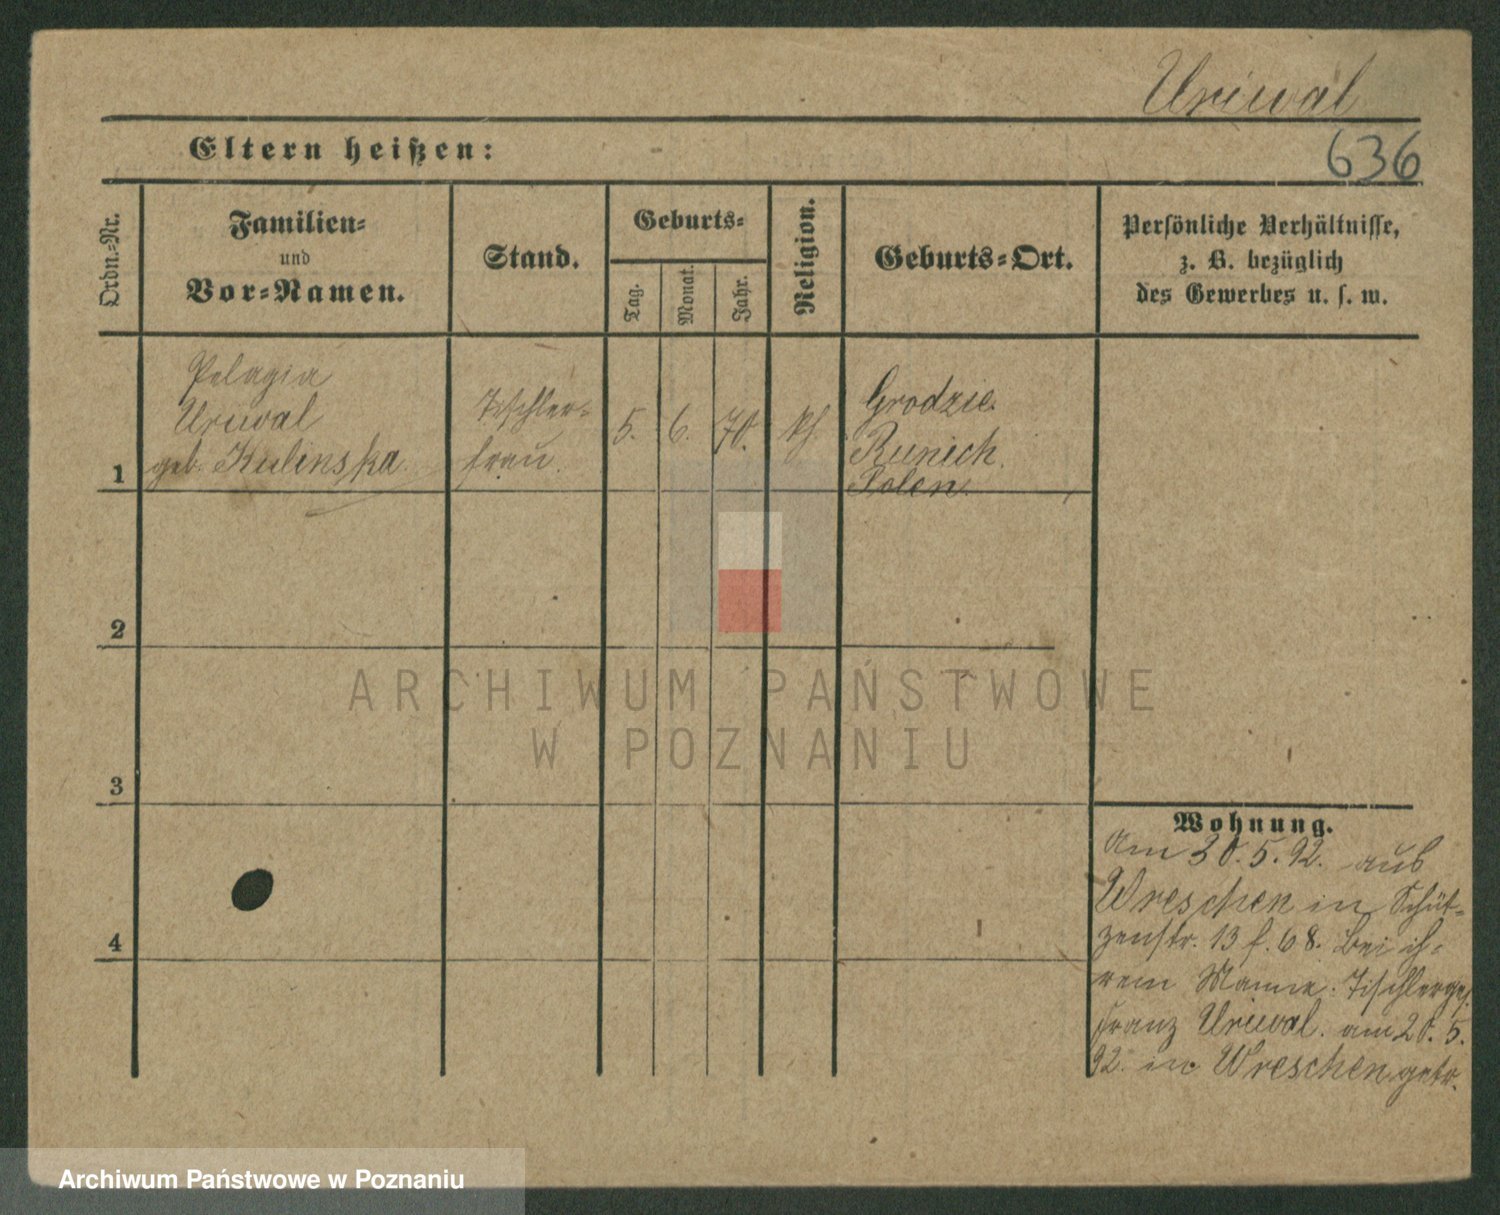 Uriwal
Eltern heißen:
636
Ordn.-Nr.
Familien-
und
Vor-Namen.
Stand.
Geburts-
Tag.
Monat.
Jahr.
Religion.
Geburts-Ort.
Persönliche Verhältnisse,
z. B. bezüglich
des Gewerbes u. s. w.
1
Pelagia
Uriwal
geb. Kulinska
Tischler-
frau.
5.
6.
70.
kh
Grodzie.
Runich.
Polen.
2
3
4
Wohnung.
Am 30.5.92. aus
Wreschen in Schüt-
zenstr. 13 f. 68. bei ih-
rem Manne. Tischlerges.
Franz Uriwal. am 20.5.
92. in Wreschen getr.
ARCHIWUM PAŃSTWOWE
W POZNANIU
Archiwum Państwowe w Poznaniu